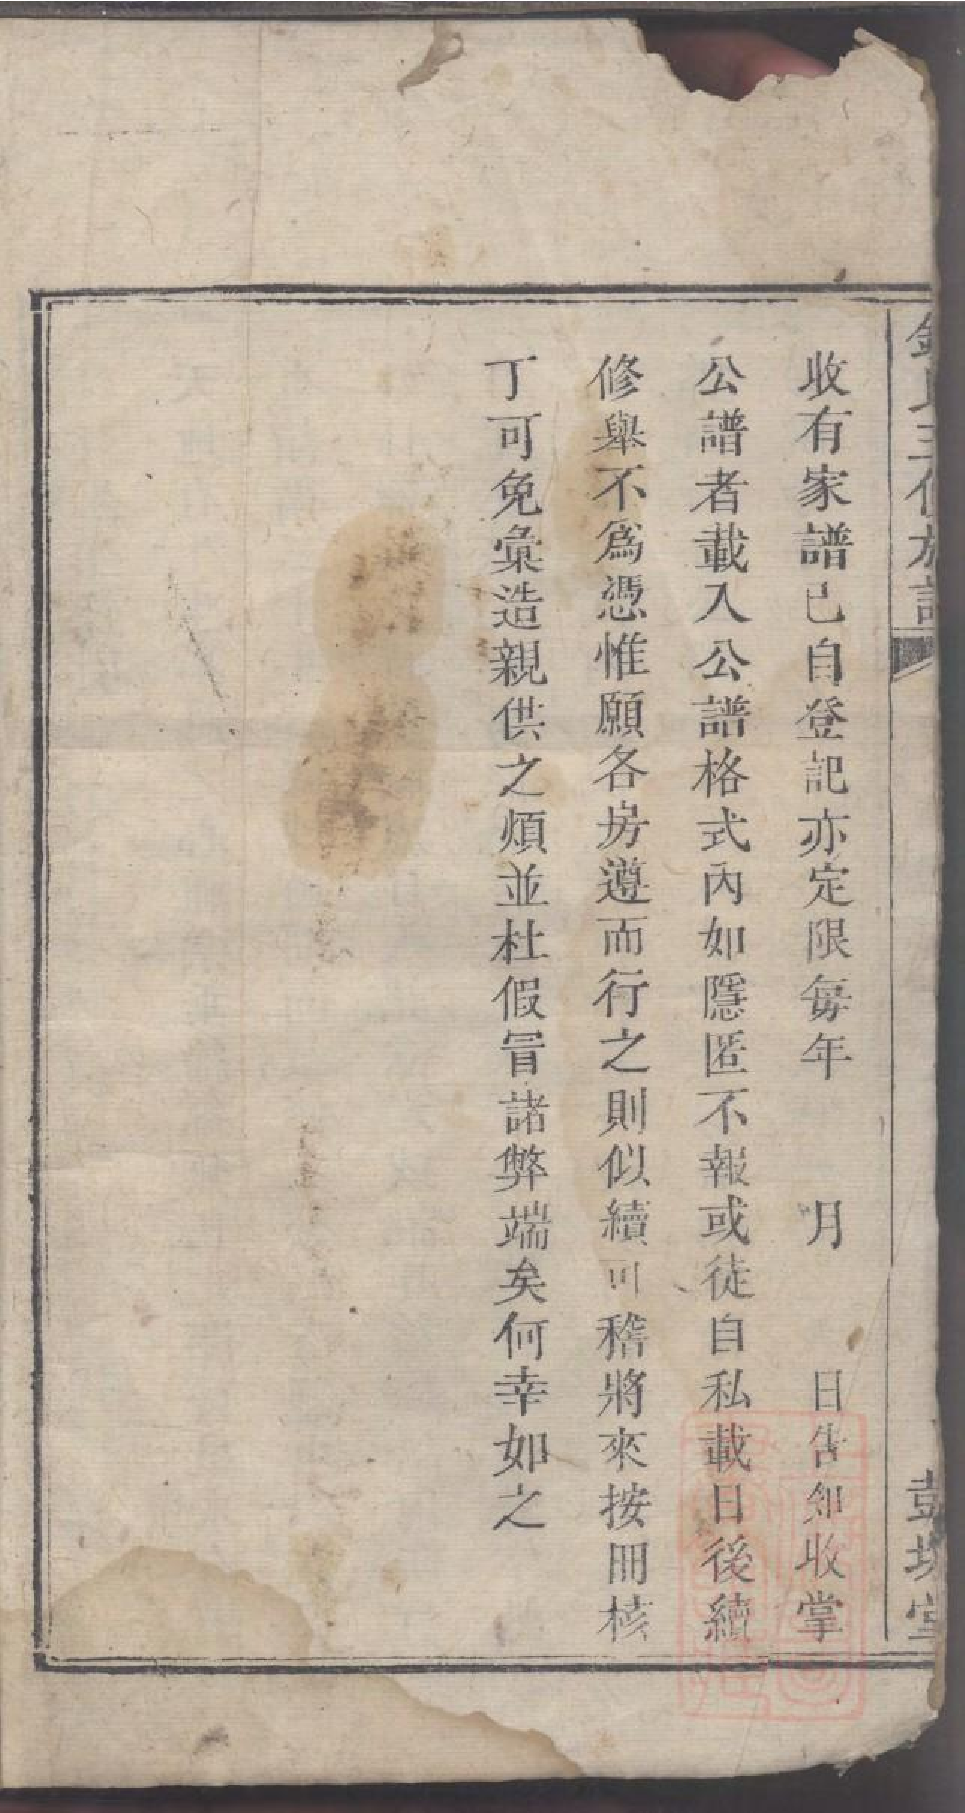 收有家譜已自登記亦定限每年　月　日告知收掌
公譜者載入公譜格式內如隱匿不報或徒自私載日後續
修舉不爲憑惟願各房遵而行之則似續可稽將來按冊核
丁可免彙造親供之煩並杜假冒諸弊端矣何幸如之